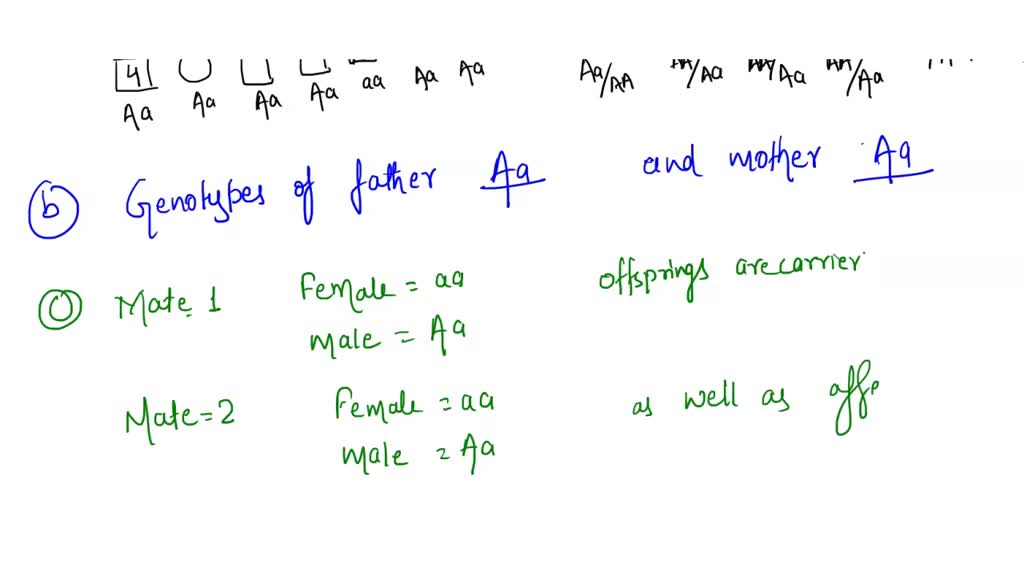 4
Aa Aa Aa Aa aa Aa Aa Aa/AA /Aa /Aa /Aa
b Genotypes of father Aa and mother Aa
Mate 1 Female = aa offsprings are carrier
male = Aa
Mate = 2 Female = aa as well as affe
male = Aa